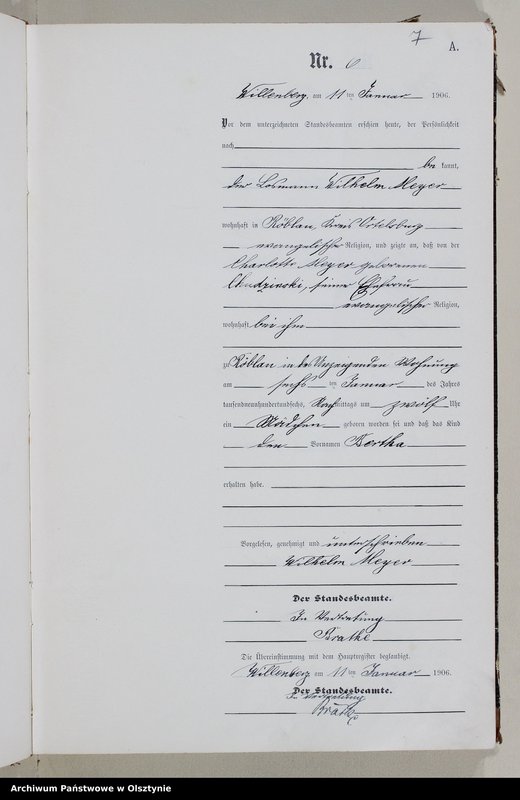 7
A.
Nr. 6
Willenberg, am 11ten Januar 1906.
Vor dem unterzeichneten Standesbeamten erschien heute, der Persönlichkeit
nach
bekannt,
der Losmann Wilhelm Meyer
wohnhaft in Röblau, Kreis Ortelsburg
evangelischer Religion, und zeigte an, daß von der
Charlotte Meyer geborenen
seiner Ehefrau
evangelischer Religion,
wohnhaft bei ihm
zu Röblau in des Anzeigenden Wohnung
am sechsten Januar des Jahres
tausendneunhundertundsechs, Nachmittags um zwölf Uhr
ein Mädchen geboren worden sei und daß das Kind
den Vornamen Bertha
erhalten habe.
Vorgelesen, genehmigt und unterschrieben
Wilhelm Meyer
Der Standesbeamte.
In Vertretung
Brathe
Die Übereinstimmung mit dem Hauptregister beglaubigt.
Willenberg am 11ten Januar 1906.
Der Standesbeamte.
In Vertretung
Brathe
Archiwum Państwowe w Olsztynie